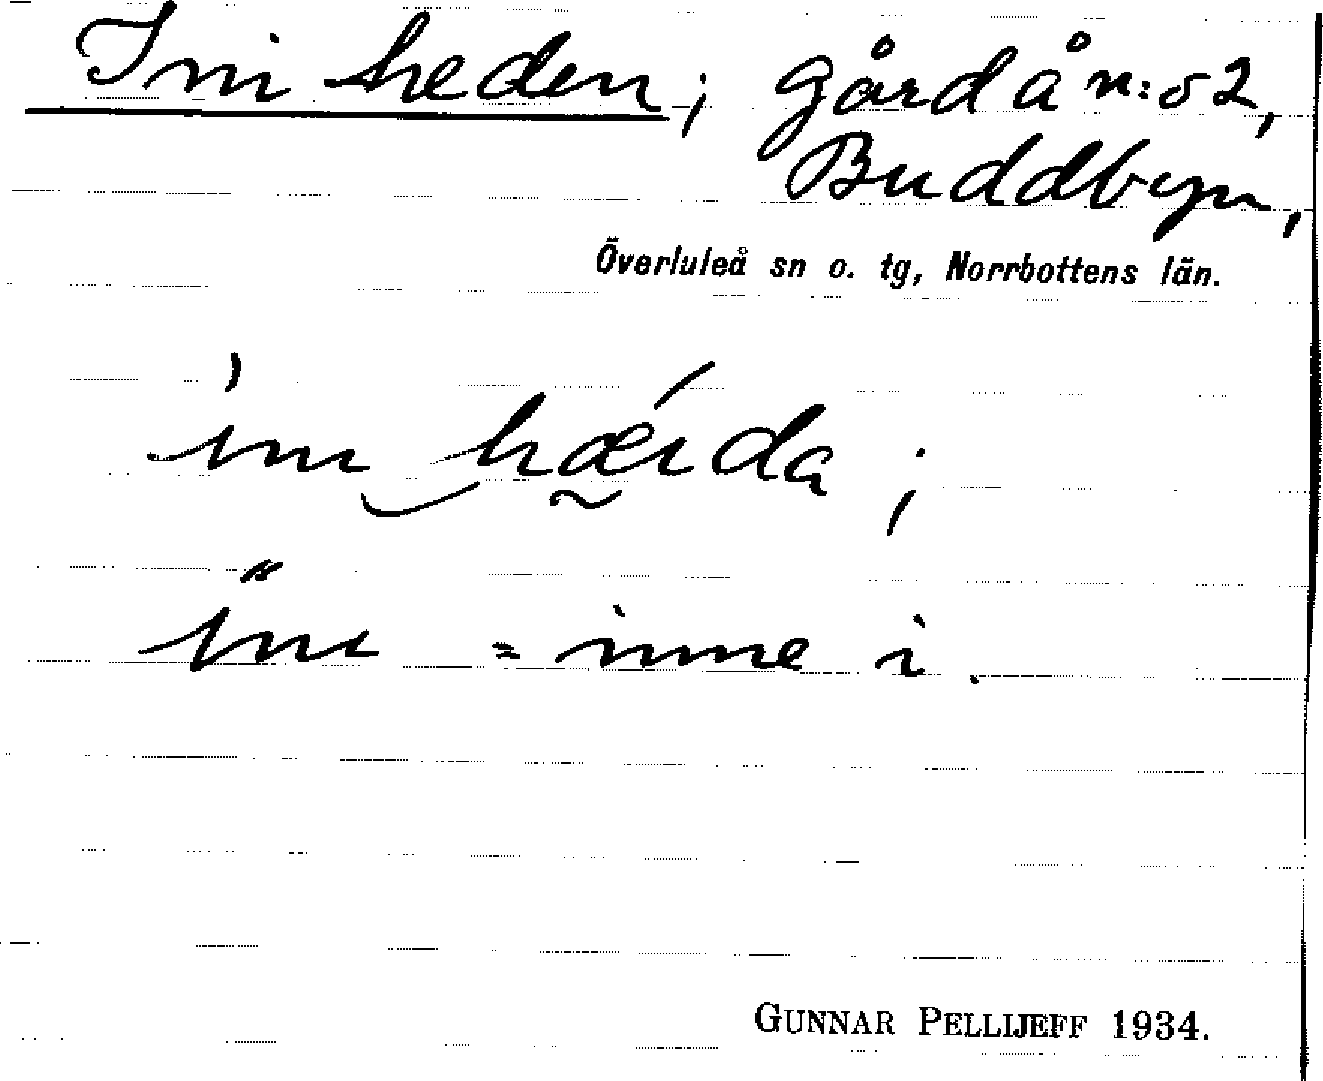 Ini heden; gård å n:o 2,
Buddbyn,
Överluleå sn o. tg, Norrbottens län.
ini hæida;
ini = inne i.
GUNNAR PELLIJEFF 1934.